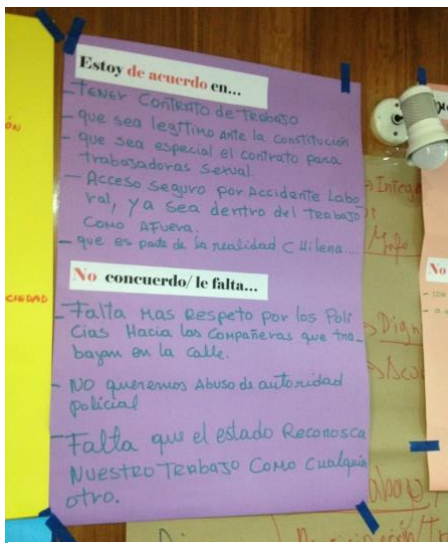 Estoy de acuerdo en...
- TENER CONTRATO de TRABAJO
- que sea legítimo ante la Constitución
- que sea especial el contrato para
trabajadoras sexual.
- Acceso seguro por Accidente Labo
ral, ya sea dentro del trabajo
como AFuera.
- que es parte de la realidad CHilena...
No concuerdo/ le falta...
- Falta mas Respeto por los Poli
cias Hacia las compañeras que tra_
bajan en la calle.
- NO queremos Abuso de autoridad
policial
- Falta que el estado Reconosca
NUESTRO TRABAJO COMO CualquiR
otro.
CIEDAD
No